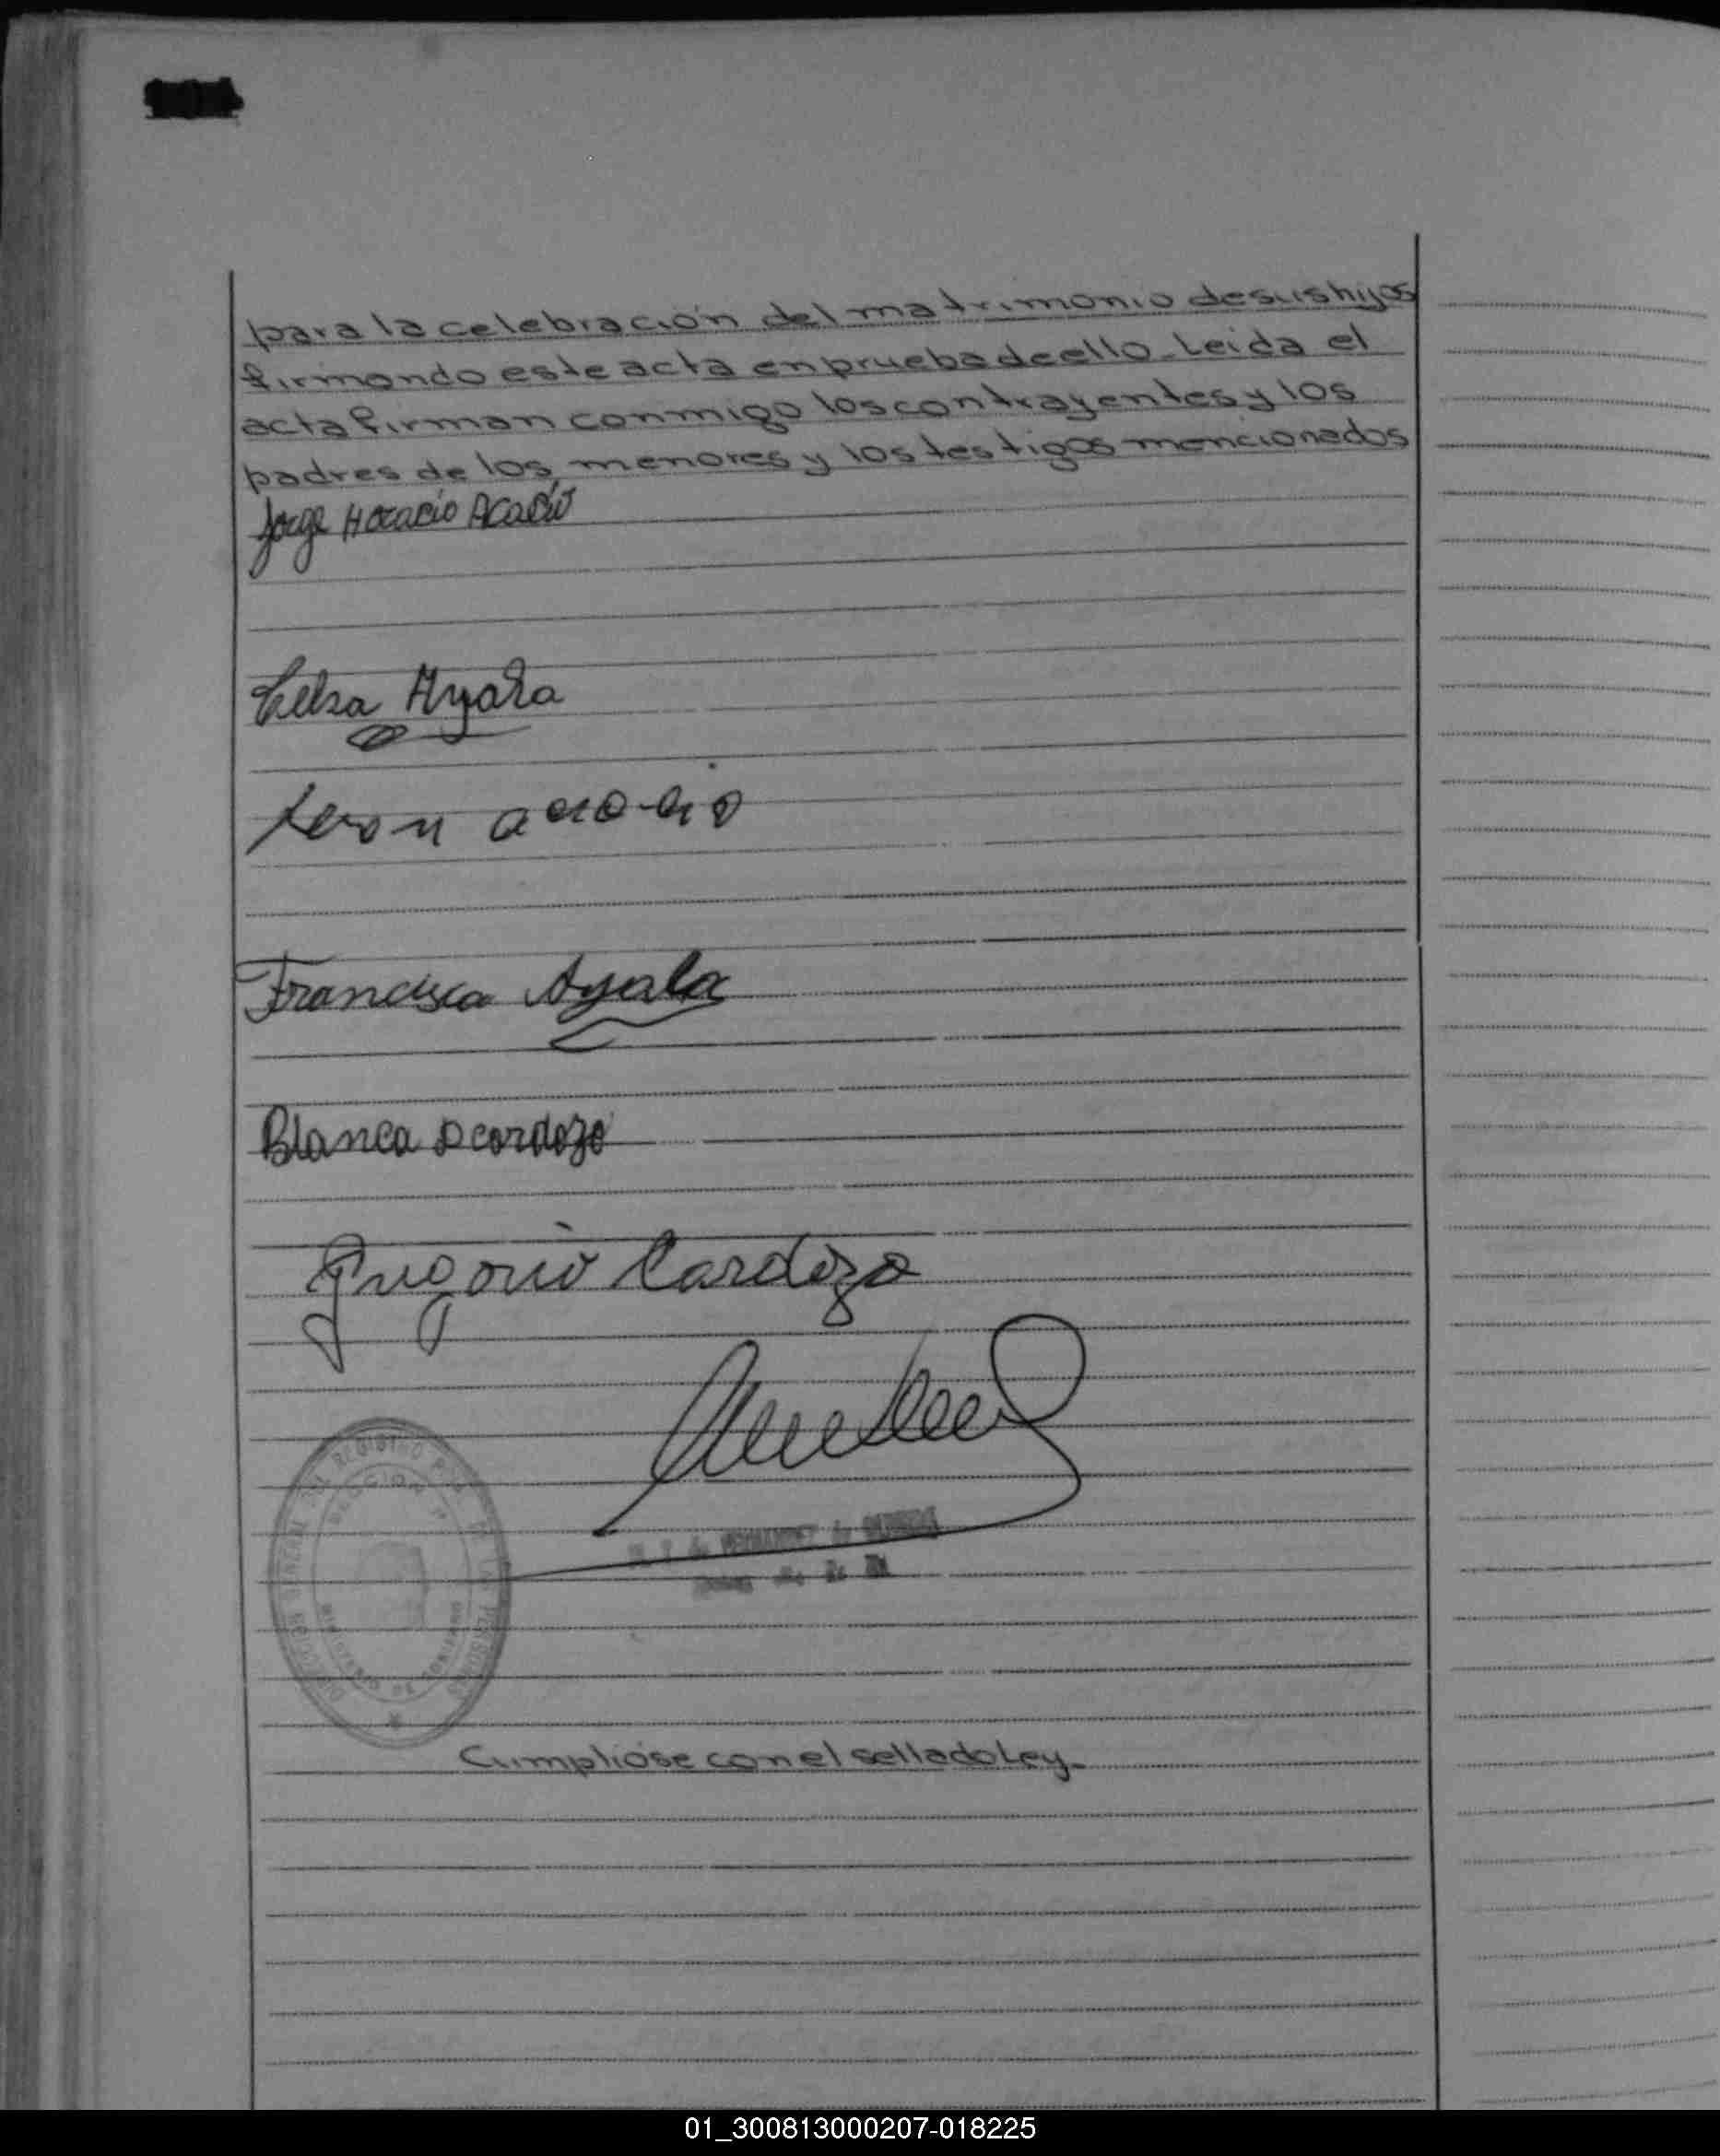 para la celebración del matrimonio de sus hijos
firmando este acta en prueba de ello. Leida el
acta firman conmigo los contrayentes y los
padres de los menores y los testigos mencionados
Jorge Horacio Acacio
Celsa Ayala
Francisca Ayala
Blanca D Cardozo
Gregorio Cardozo
DIRECCION GENERAL DEL REGISTRO PCIAL DE LAS PERSONAS
SECCION
Cumpliose con el sellado Ley.
01_300813000207-018225